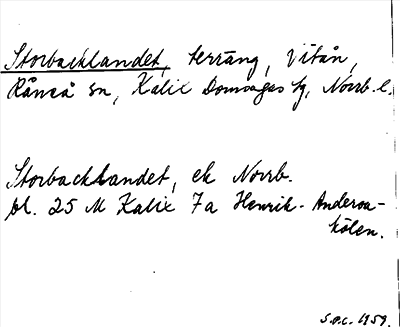 Storbacklandet, terräng, Vitån,
Råneå sn, Kalix Domsagas tg, Norrb. l.
Storbacklandet, ek Norrb.
bl. 25 M Kalix 7a Henrik-Andersa-
kölen.
S.O.C. 1959.